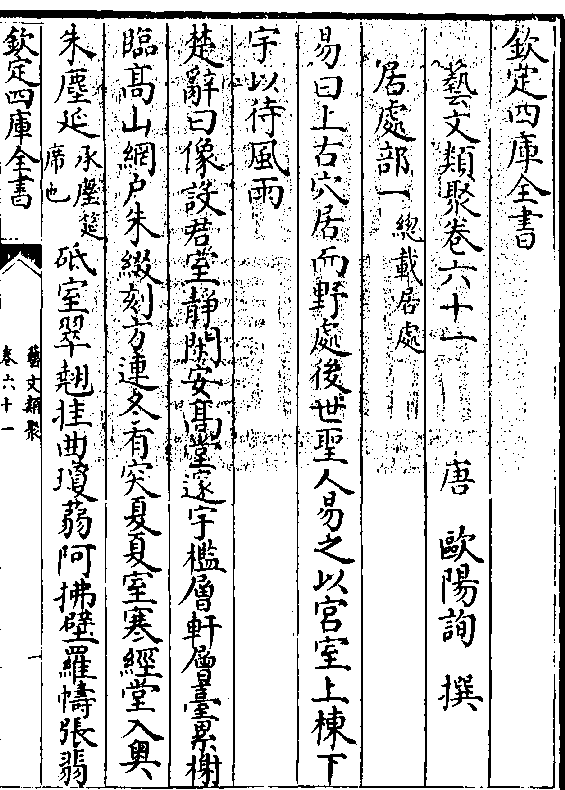 欽定四庫全書
藝文類聚卷六十一　唐　歐陽詢　撰
居處部一　總載居處
易曰上古穴居而野處後世聖人易之以宮室上棟下
宇以待風雨
楚辭曰像設君堂靜閒安髙堂邃宇檻層軒層臺累榭
臨髙山網户朱綴刻方連冬有突夏夏室寒經堂入奧
朱塵延承塵筵席也砥室翠翹挂曲瓊蒻阿拂壁羅幬張翡
欽定四庫全書
藝文類聚
卷六十一